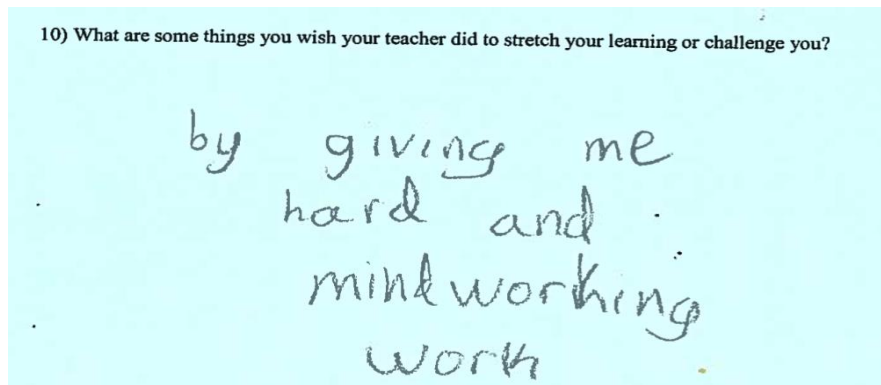 10) What are some things you wish your teacher did to stretch your learning or challenge you?
by giving me
hard and
mind working
work